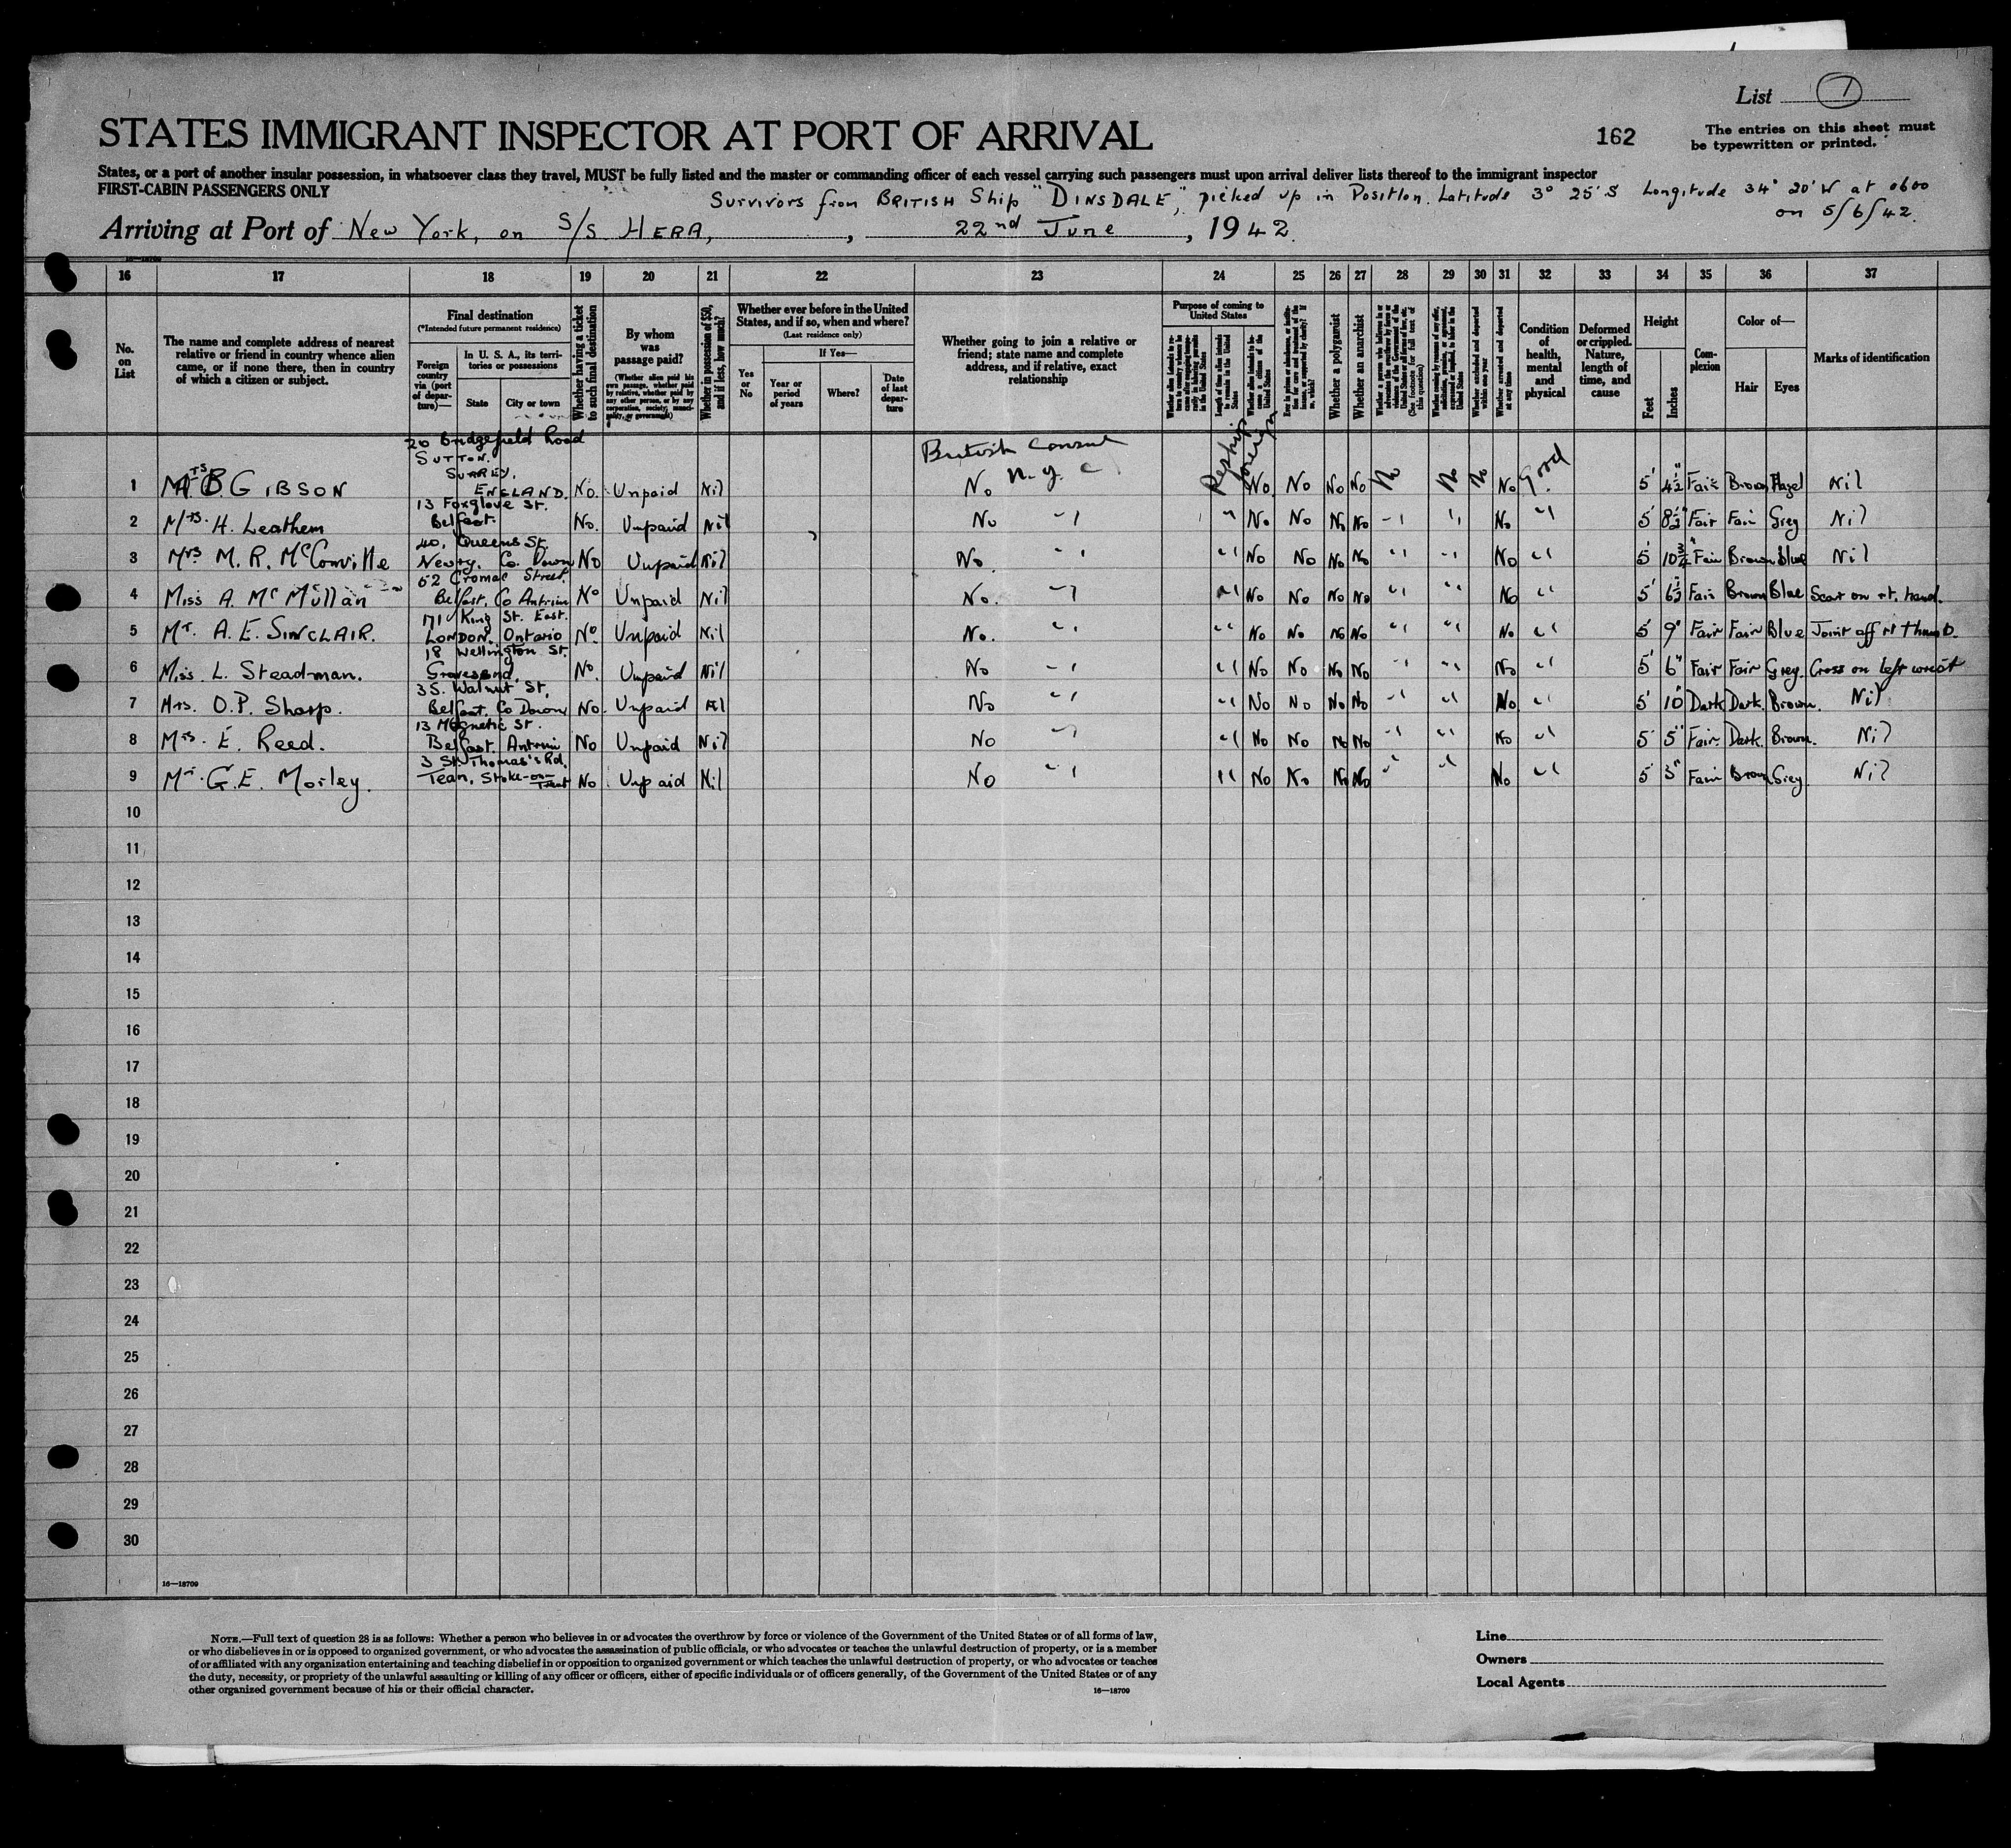 List 1
STATES IMMIGRANT INSPECTOR AT PORT OF ARRIVAL
162
The entries on this sheet must
be typewritten or printed.
States, or a port of another insular possession, in whatsoever class they travel, MUST be fully listed and the master or commanding officer of each vessel carrying such passengers must upon arrival deliver lists thereof to the immigrant inspector
FIRST-CABIN PASSENGERS ONLY
Survivors from BRITISH Ship "DINSDALE", picked up in Position Latitude 3° 25' S Longitude 34° 20' W at 0600
on 5/6/42.
Arriving at Port of New York, on S/S. HERA, , 22nd June , 1942.
16—18709
16 17 18 19 20 21 22 23 24 25 26 27 28 29 30 31 32 33 34 35 36 37
No. on List
The name and complete address of nearest relative or friend in country whence alien came, or if none there, then in country of which a citizen or subject.
Final destination
(*Intended future permanent residence)
Foreign country via (port of departure)—
In U. S. A., its territories or possessions
State
City or town
Whether having a ticket to such final destination
By whom was passage paid?
(Whether alien paid his own passage, whether paid by relative, whether paid by any other person, or by any corporation, society, municipality, or government)
Whether in possession of $50, and if less, how much?
Whether ever before in the United States, and if so, when and where?
(Last residence only)
Yes or No
If Yes—
Year or period of years
Where?
Date of last departure
Whether going to join a relative or friend; state name and complete address, and if relative, exact relationship
Purpose of coming to United States
Whether a polygamist
Whether an anarchist
Whether excluded and deported within one year
Whether arrested and deported at any time
Condition of health, mental and physical
Deformed or crippled. Nature, length of time, and cause
Height
Feet
Inches
Complexion
Color of—
Hair
Eyes
Marks of identification
20 Bridgefield Road
SUTTON.
SURREY.
British Consul
N.Y.C
1 GIBSON ENGLAND. No. Unpaid Nil No Reship foreign No No No No No No No No Good. 5' 4½" Fair Brown Hazel Nil
13 Foxglove St.
2 Mrs. H. Leathem Belfast. No. Unpaid Nil No " " No No No No " " No " 5' 8½" Fair Fair Grey Nil
40, Queens St.
3 Mrs M. R. McConville Newry. Co. Down No Unpaid Nil No. " " No No No No " " No " 5' 10¾" Fair Brown Blue Nil
62 Cromac Street.
4 Miss A. McMullan Belfast. Co Antrim No Unpaid Nil No. " " No No No No " " No " 5' 6½" Fair Brown Blue Scar on rt. hand.
171 King St. East.
5 Mr. A. E. SINCLAIR. LONDON. Ontario No. Unpaid Nil No. " " No No No No " " No " 5' 9" Fair Fair Blue Joint off rt thumb.
18 Wellington St.
6 Miss. L. Steadman. Gravesend. No. Unpaid Nil No " " No No No No " " No " 5' 6" Fair Fair Grey. Cross on left wrist
35. Walnut St,
7 Mrs. O.P. Sharp. Belfast. Co Down No. Unpaid Nil No " " No No No No " " No. " 5' 10" Dark Dark Brown. Nil
13 Magnetic St.
8 Mrs. E. Reed. Belfast. Antrim No Unpaid Nil No " " No No No No " " No " 5' 5" Fair. Dark. Brown. Nil
3 St. Thomas's Rd.
9 Mr. G.E. Morley. Tean, Stoke-on-Trent No Unpaid Nil No " " No No No No " " No " 5' 3" Fair Brown Grey Nil
10
11
12
13
14
15
16
17
18
19
20
21
22
23
24
25
26
27
28
29
30
16—18709
NOTE.—Full text of question 28 is as follows: Whether a person who believes in or advocates the overthrow by force or violence of the Government of the United States or of all forms of law,
or who disbelieves in or is opposed to organized government, or who advocates the assassination of public officials, or who advocates or teaches the unlawful destruction of property, or is a member
of or affiliated with any organization entertaining and teaching disbelief in or opposition to organized government or which teaches the unlawful destruction of property, or who advocates or teaches
the duty, necessity, or propriety of the unlawful assaulting or killing of any officer or officers, either of specific individuals or of officers generally, of the Government of the United States or of any
other organized government because of his or their official character.
16—18709
Line
Owners
Local Agents